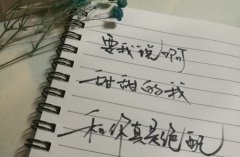 要我说啊
甜甜的我
和你真是绝配